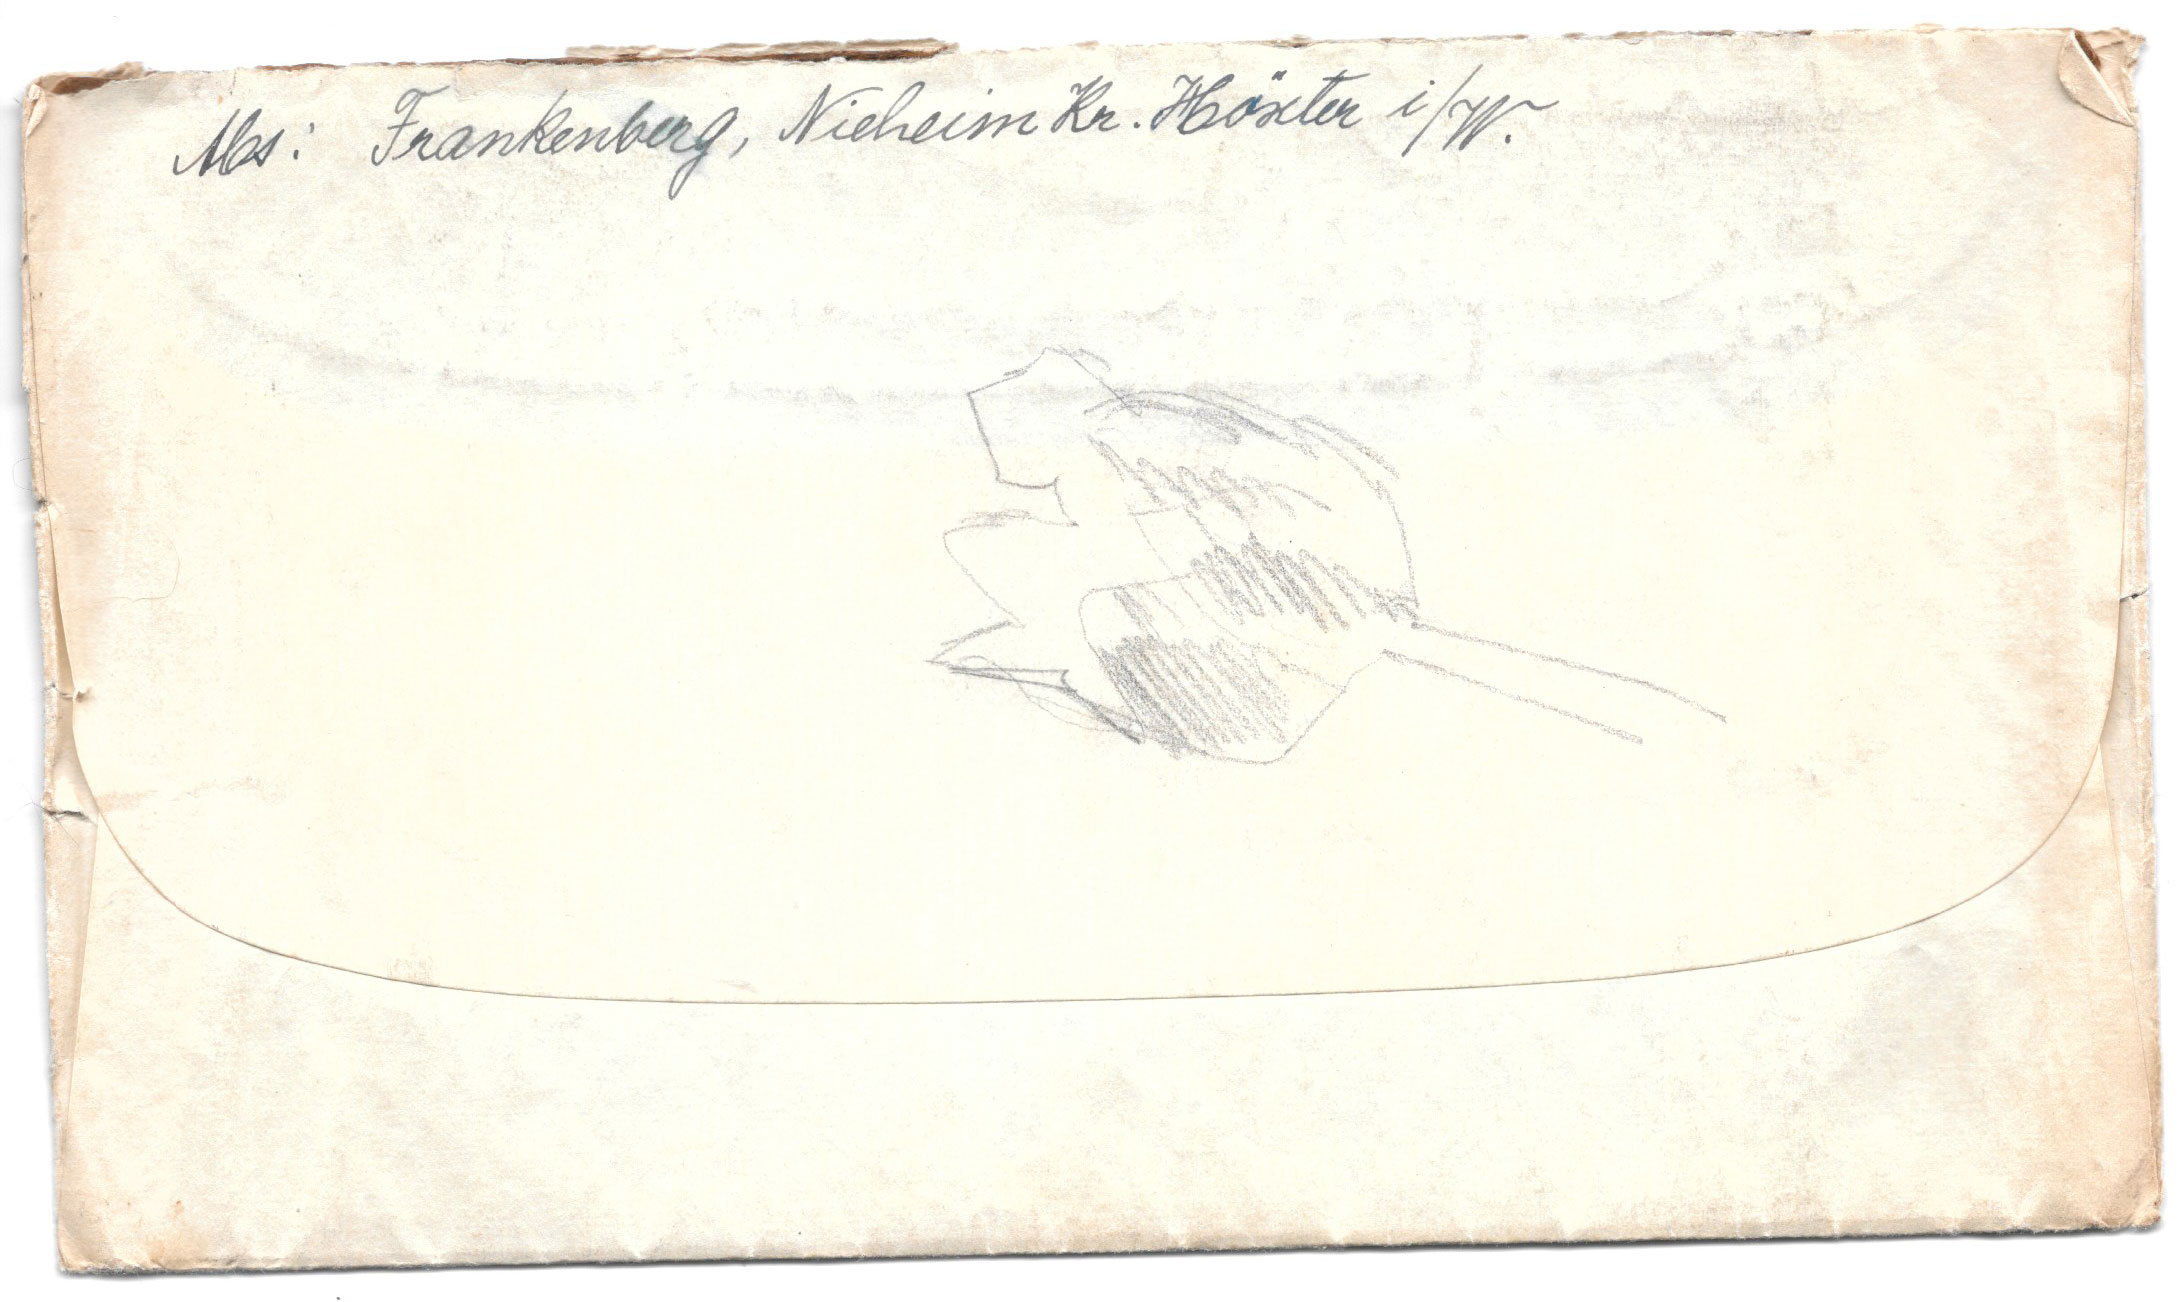 Abs: Frankenberg, Nieheim Kr. Höxter i/W.